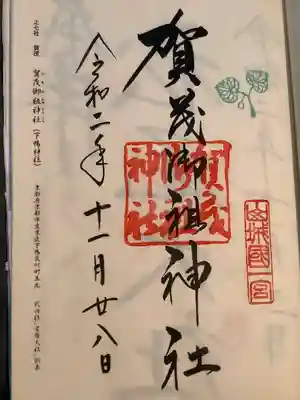 山城國一宮
賀茂御祖神社
賀茂御祖神社
令和二年十一月廿八日
賀茂御祖神社(下鴨神社)